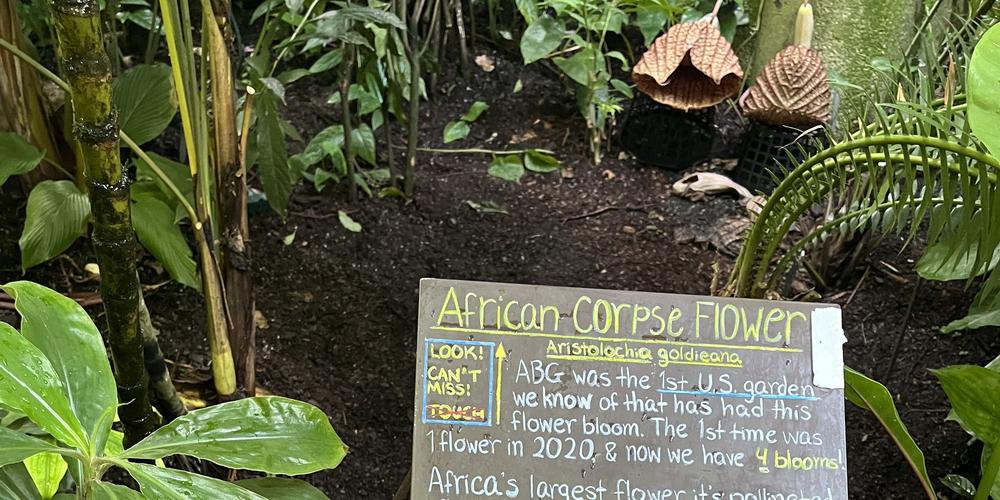 African Corpse Flower
Aristolochia goldieana
LOOK!
CAN'T
MISS!
TOUCH
ABG was the 1st U.S. garden
we know of that has had this
flower bloom. The 1st time was
1 flower in 2020, & now we have 4 blooms!
Africa's largest flower it's pollinated